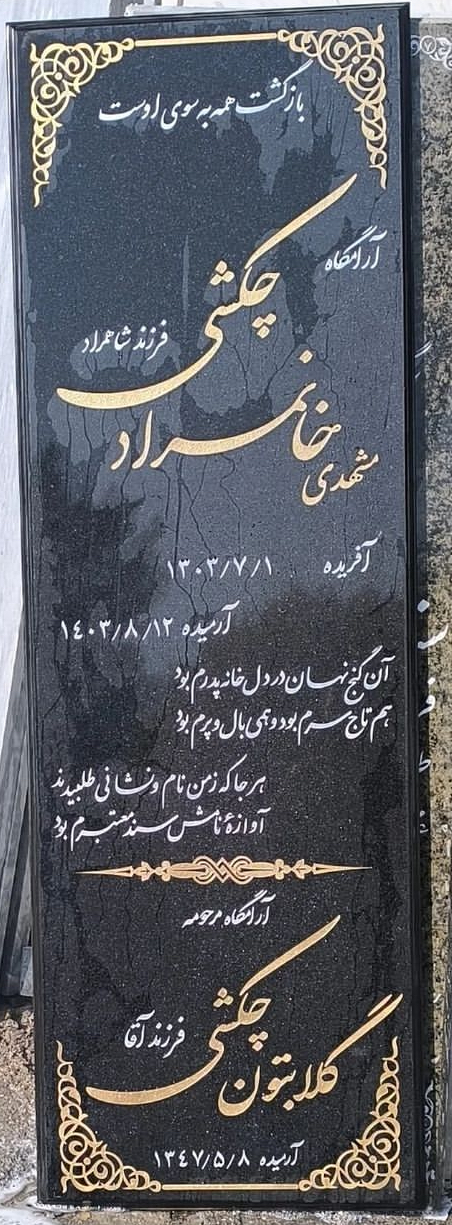 بازگشت همه به سوی اوست
آرامگاه
مشهدی خانمراد چکشی
فرزند شاهمراد
آفریده ۱۳۰۳/۷/۱
آرمیده ۱۴۰۳/۸/۱۲
آن گنج نهان در دل خانه پدرم بود
هم تاج سرم بود و همی بال و پرم بود
هر جا که ز من نام و نشانی طلبیدند
آوازهٔ نامش سند معتبرم بود
آرامگاه مرحومه
گلابتون چکشی
فرزند آقا
آرمیده ۱۳۴۷/۵/۸